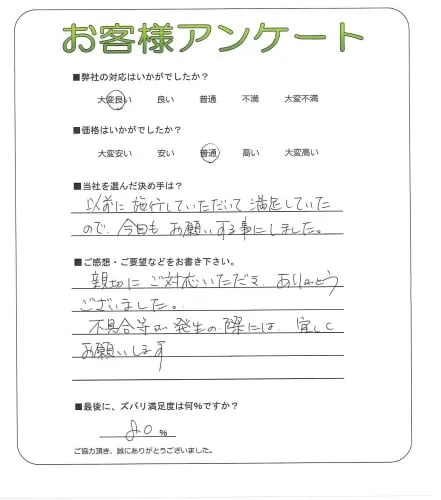 お客様アンケート
■弊社の対応はいかがでしたか？
大変良い 良い 普通 不満 大変不満
■価格はいかがでしたか？
大変安い 安い 普通 高い 大変高い
■当社を選んだ決め手は？
以前に施行していただいて満足していた
ので、今回もお願いする事にしました。
■ご感想・ご要望などをお書き下さい。
親切にご対応いただき、ありがとう
ございました。
不具合等が発生の際には、宜しく
お願いします
■最後に、ズバリ満足度は何%ですか？
80 %
ご協力頂き、誠にありがとうございました。